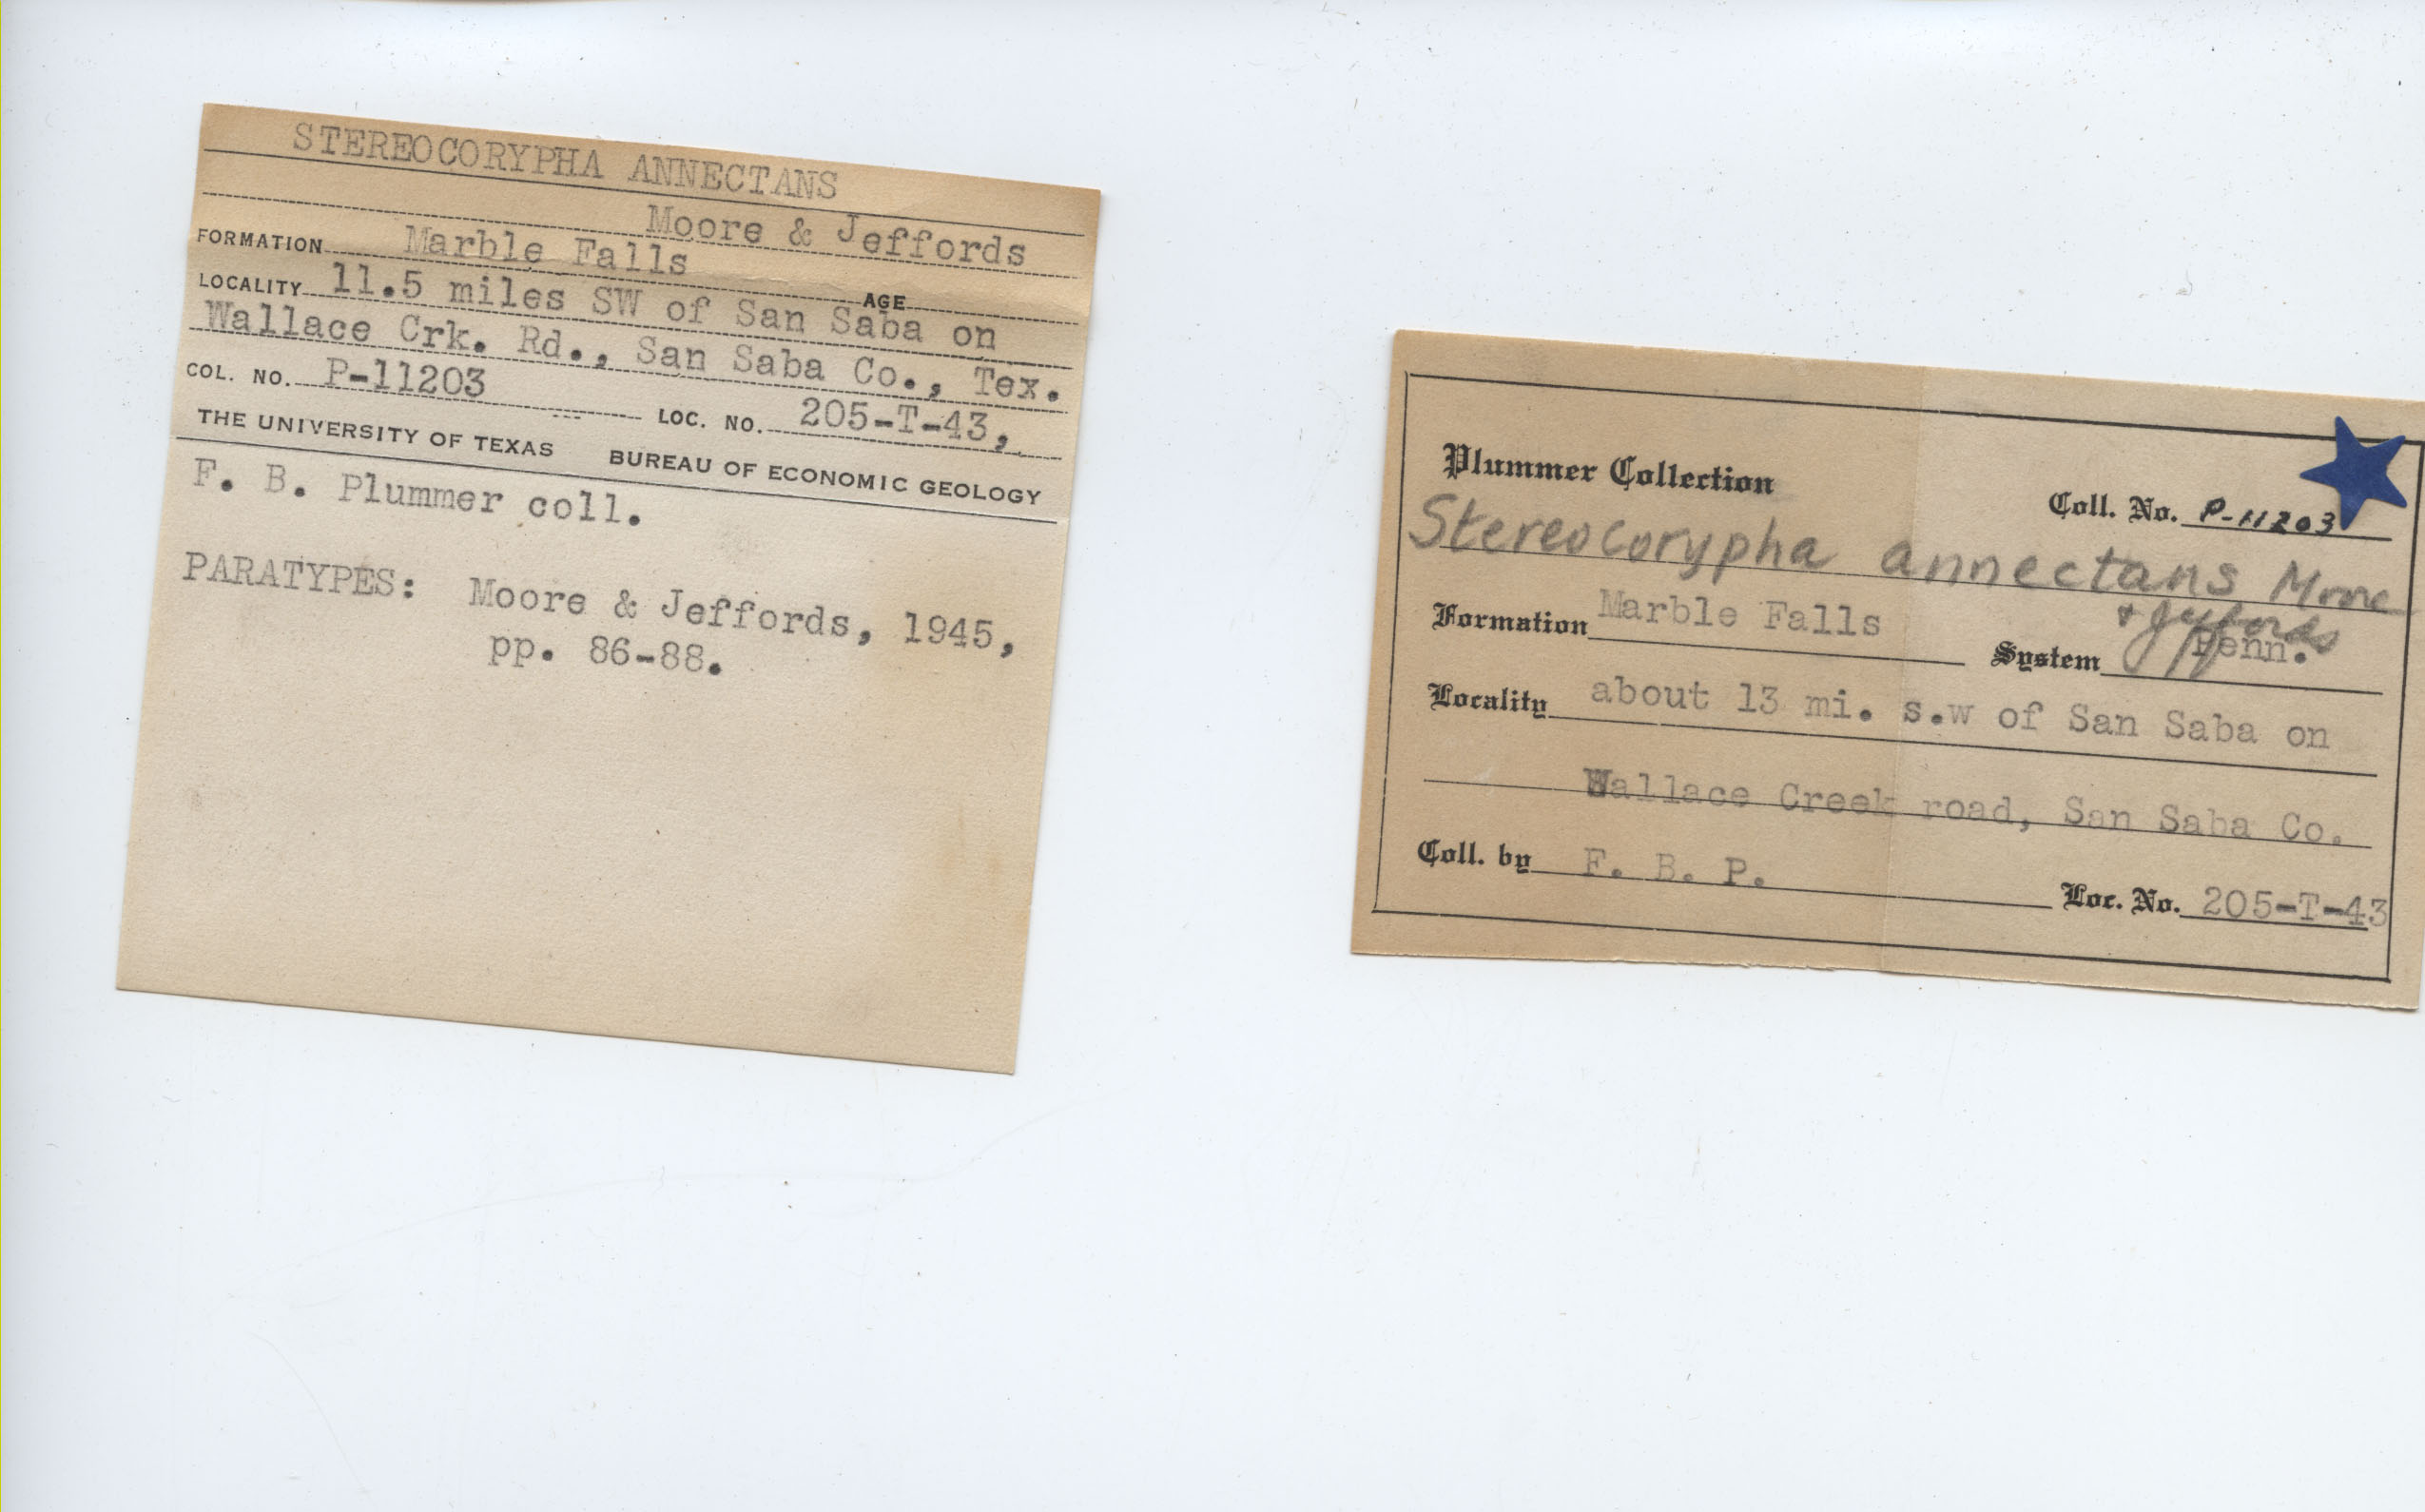 STEREOCORYPHA ANNECTANS
Moore & Jeffords
FORMATION Marble Falls
AGE
LOCALITY 11.5 miles SW of San Saba on
Wallace Crk. Rd., San Saba Co., Tex.
COL. NO. P-11203 LOC. NO. 205-T-43,
THE UNIVERSITY OF TEXAS BUREAU OF ECONOMIC GEOLOGY
F. B. Plummer coll.
PARATYPES: Moore & Jeffords, 1945,
pp. 86-88.
Plummer Collection
Coll. No. P-11203
Stereocorypha annectans Moore
+ Jeffords
Formation Marble Falls
System Penn.
Locality about 13 mi. s.w of San Saba on
Wallace Creek road, San Saba Co.
Coll. by F. B. P.
Loc. No. 205-T-43